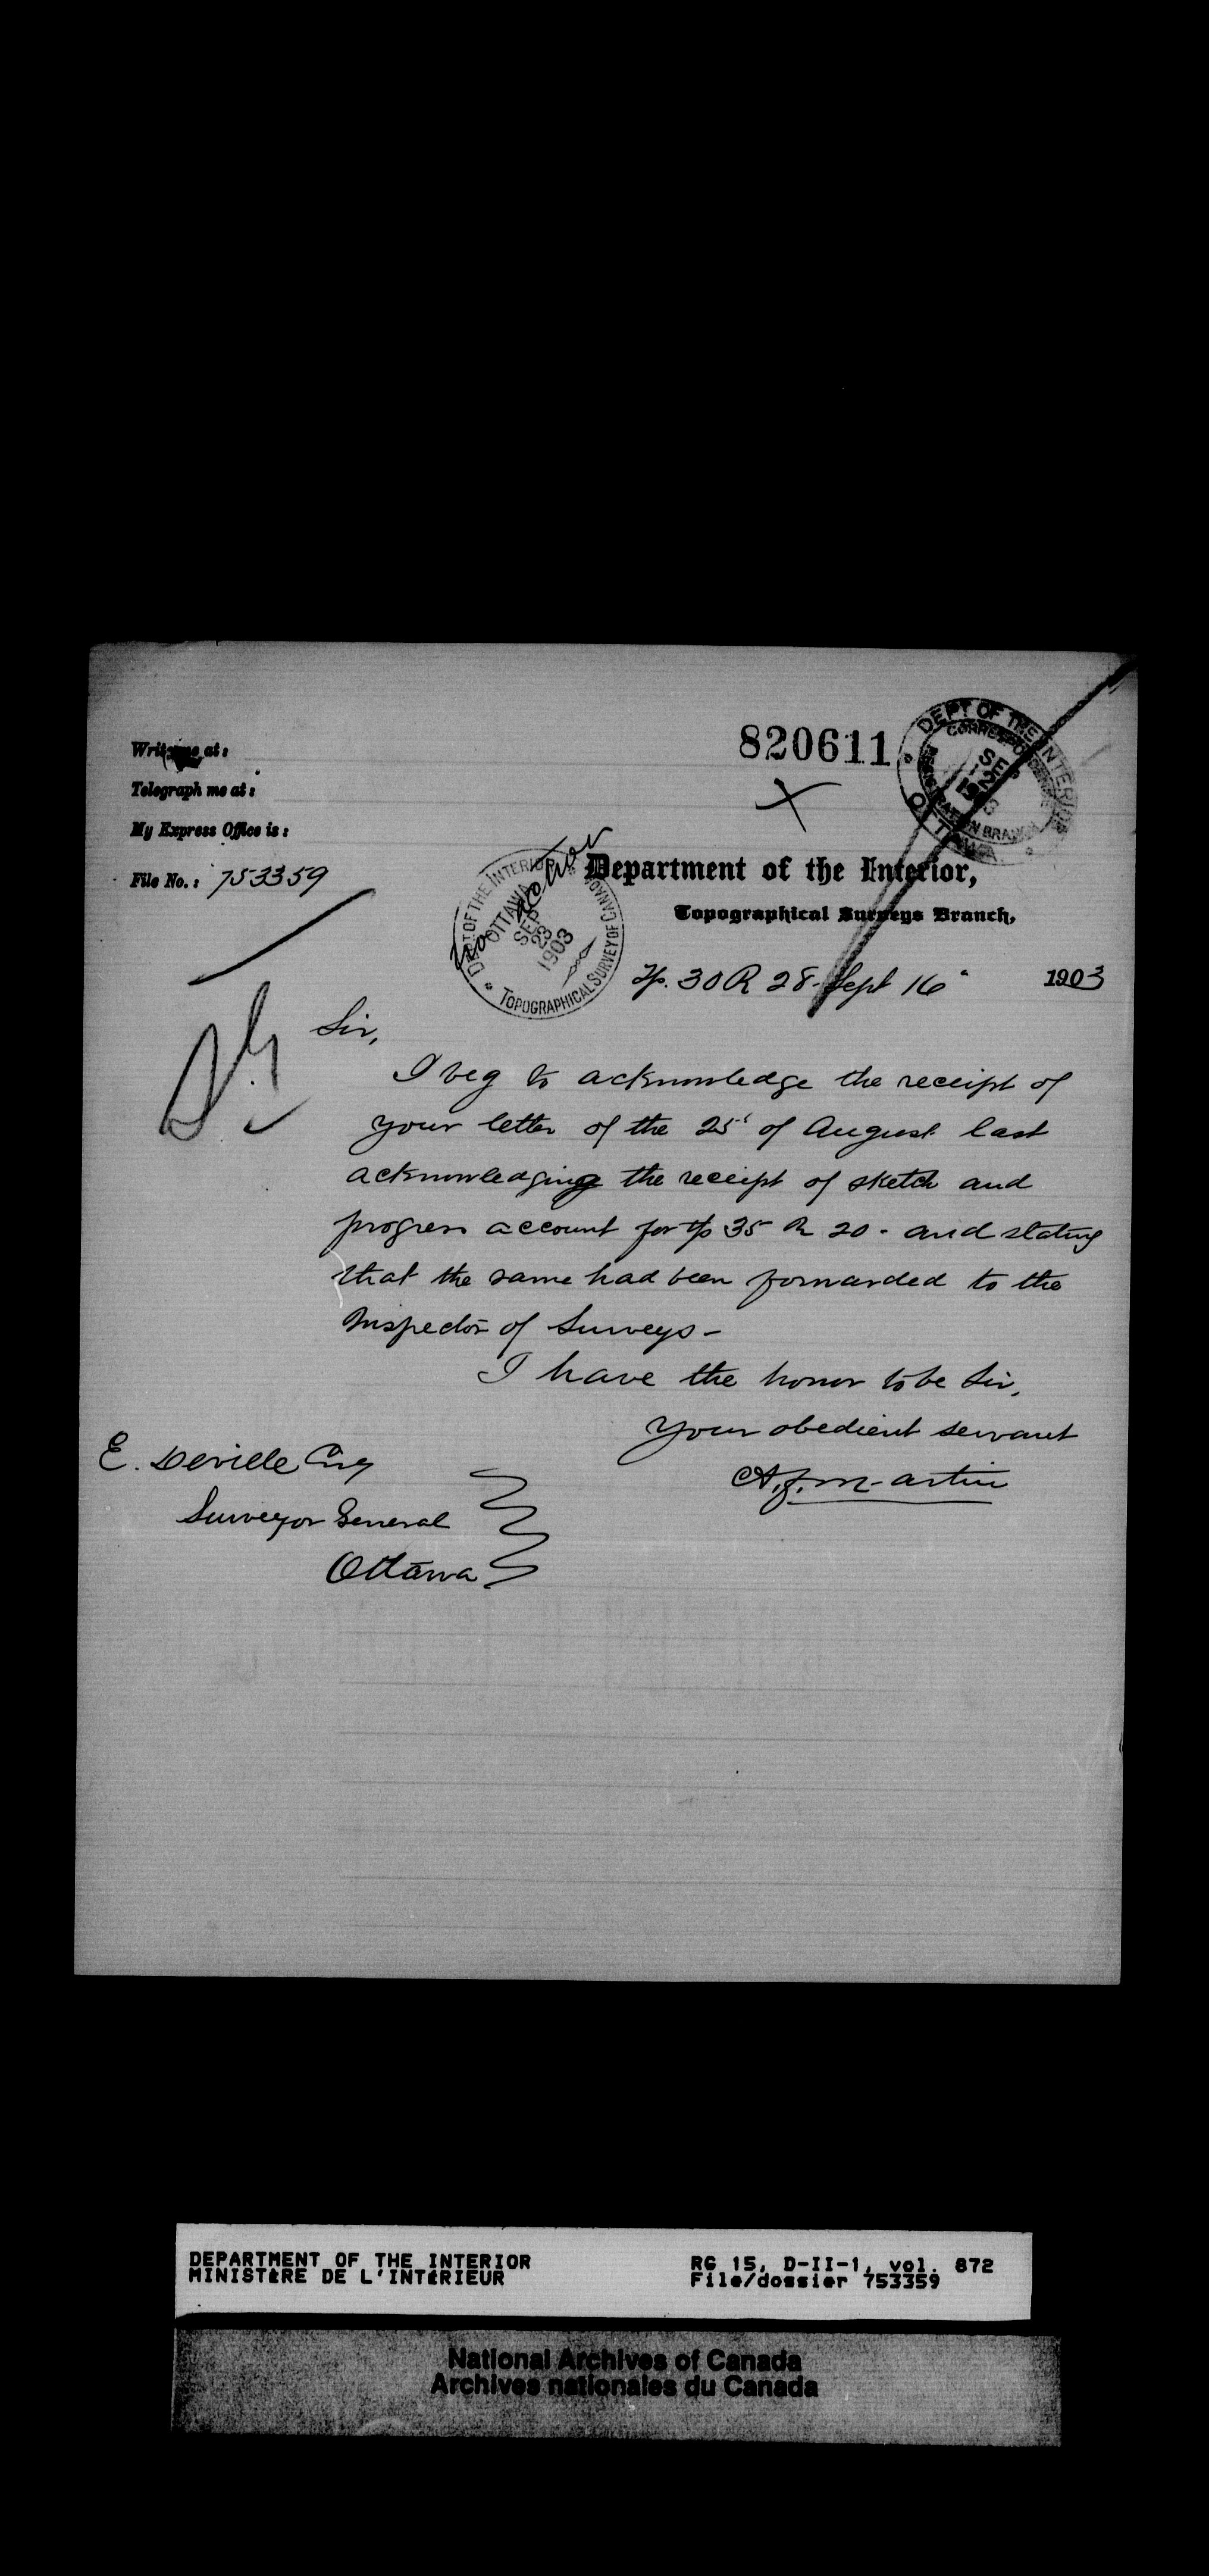 820611
DEPT OF THE INTERIOR
CORRESPONDENCE REGISTRATION BRANCH
SEP
OTTAWA
Write me at:
Telegraph me at:
My Express Office is:
File No.: 753359
no action
DEPT OF THE INTERIOR
OTTAWA
SEP
23
1903
TOPOGRAPHICAL SURVEY OF CANADA
Department of the Interior,
Topographical Surveys Branch,
Tp. 30 R 28 - Sept 16 1903
Sir,
I beg to acknowledge the receipt of
your letter of the 25 of August last
acknowledging the receipt of sketch and
progress account for tp 35 R 20 - and stating
that the same had been forwarded to the
Inspector of Surveys -
I have the honor to be Sir,
Your obedient servant
A.F. Martin
E. Deville Esq
Surveyor General
Ottawa
DEPARTMENT OF THE INTERIOR
MINISTÈRE DE L'INTÉRIEUR
RG 15, D-II-1, vol. 872
File/dossier 753359
National Archives of Canada
Archives nationales du Canada